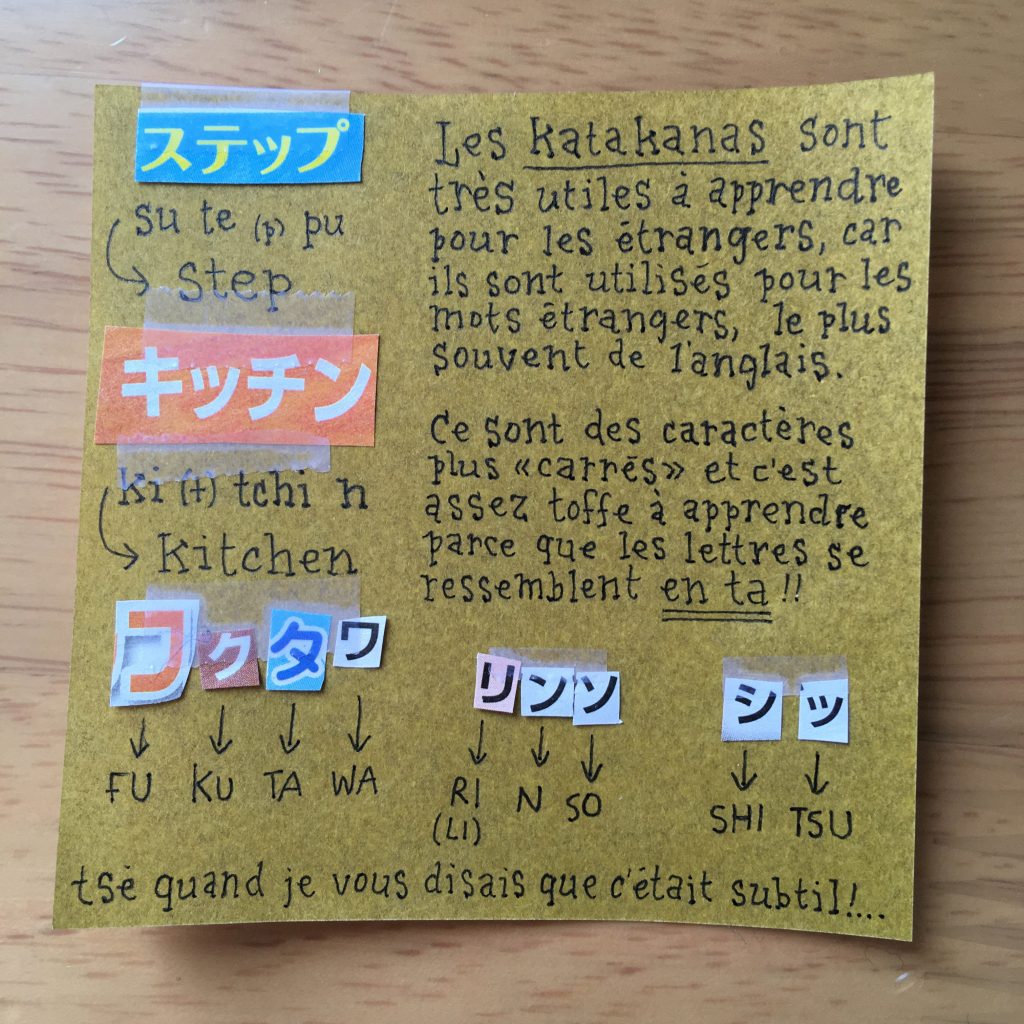 ステップ
su te (p) pu
step
キッチン
ki (t) tchi n
kitchen
Les katakanas sont
très utiles à apprendre
pour les étrangers, car
ils sont utilisés pour les
mots étrangers, le plus
souvent de l'anglais.
Ce sont des caractères
plus «carrés» et c'est
assez toffe à apprendre
parce que les lettres se
ressemblent en ta!!
フ ク タ ワ
FU KU TA WA
リ ン ソ
RI N SO
(LI)
シ ッ
SHI TSU
tsé quand je vous disais que c'était subtil!....